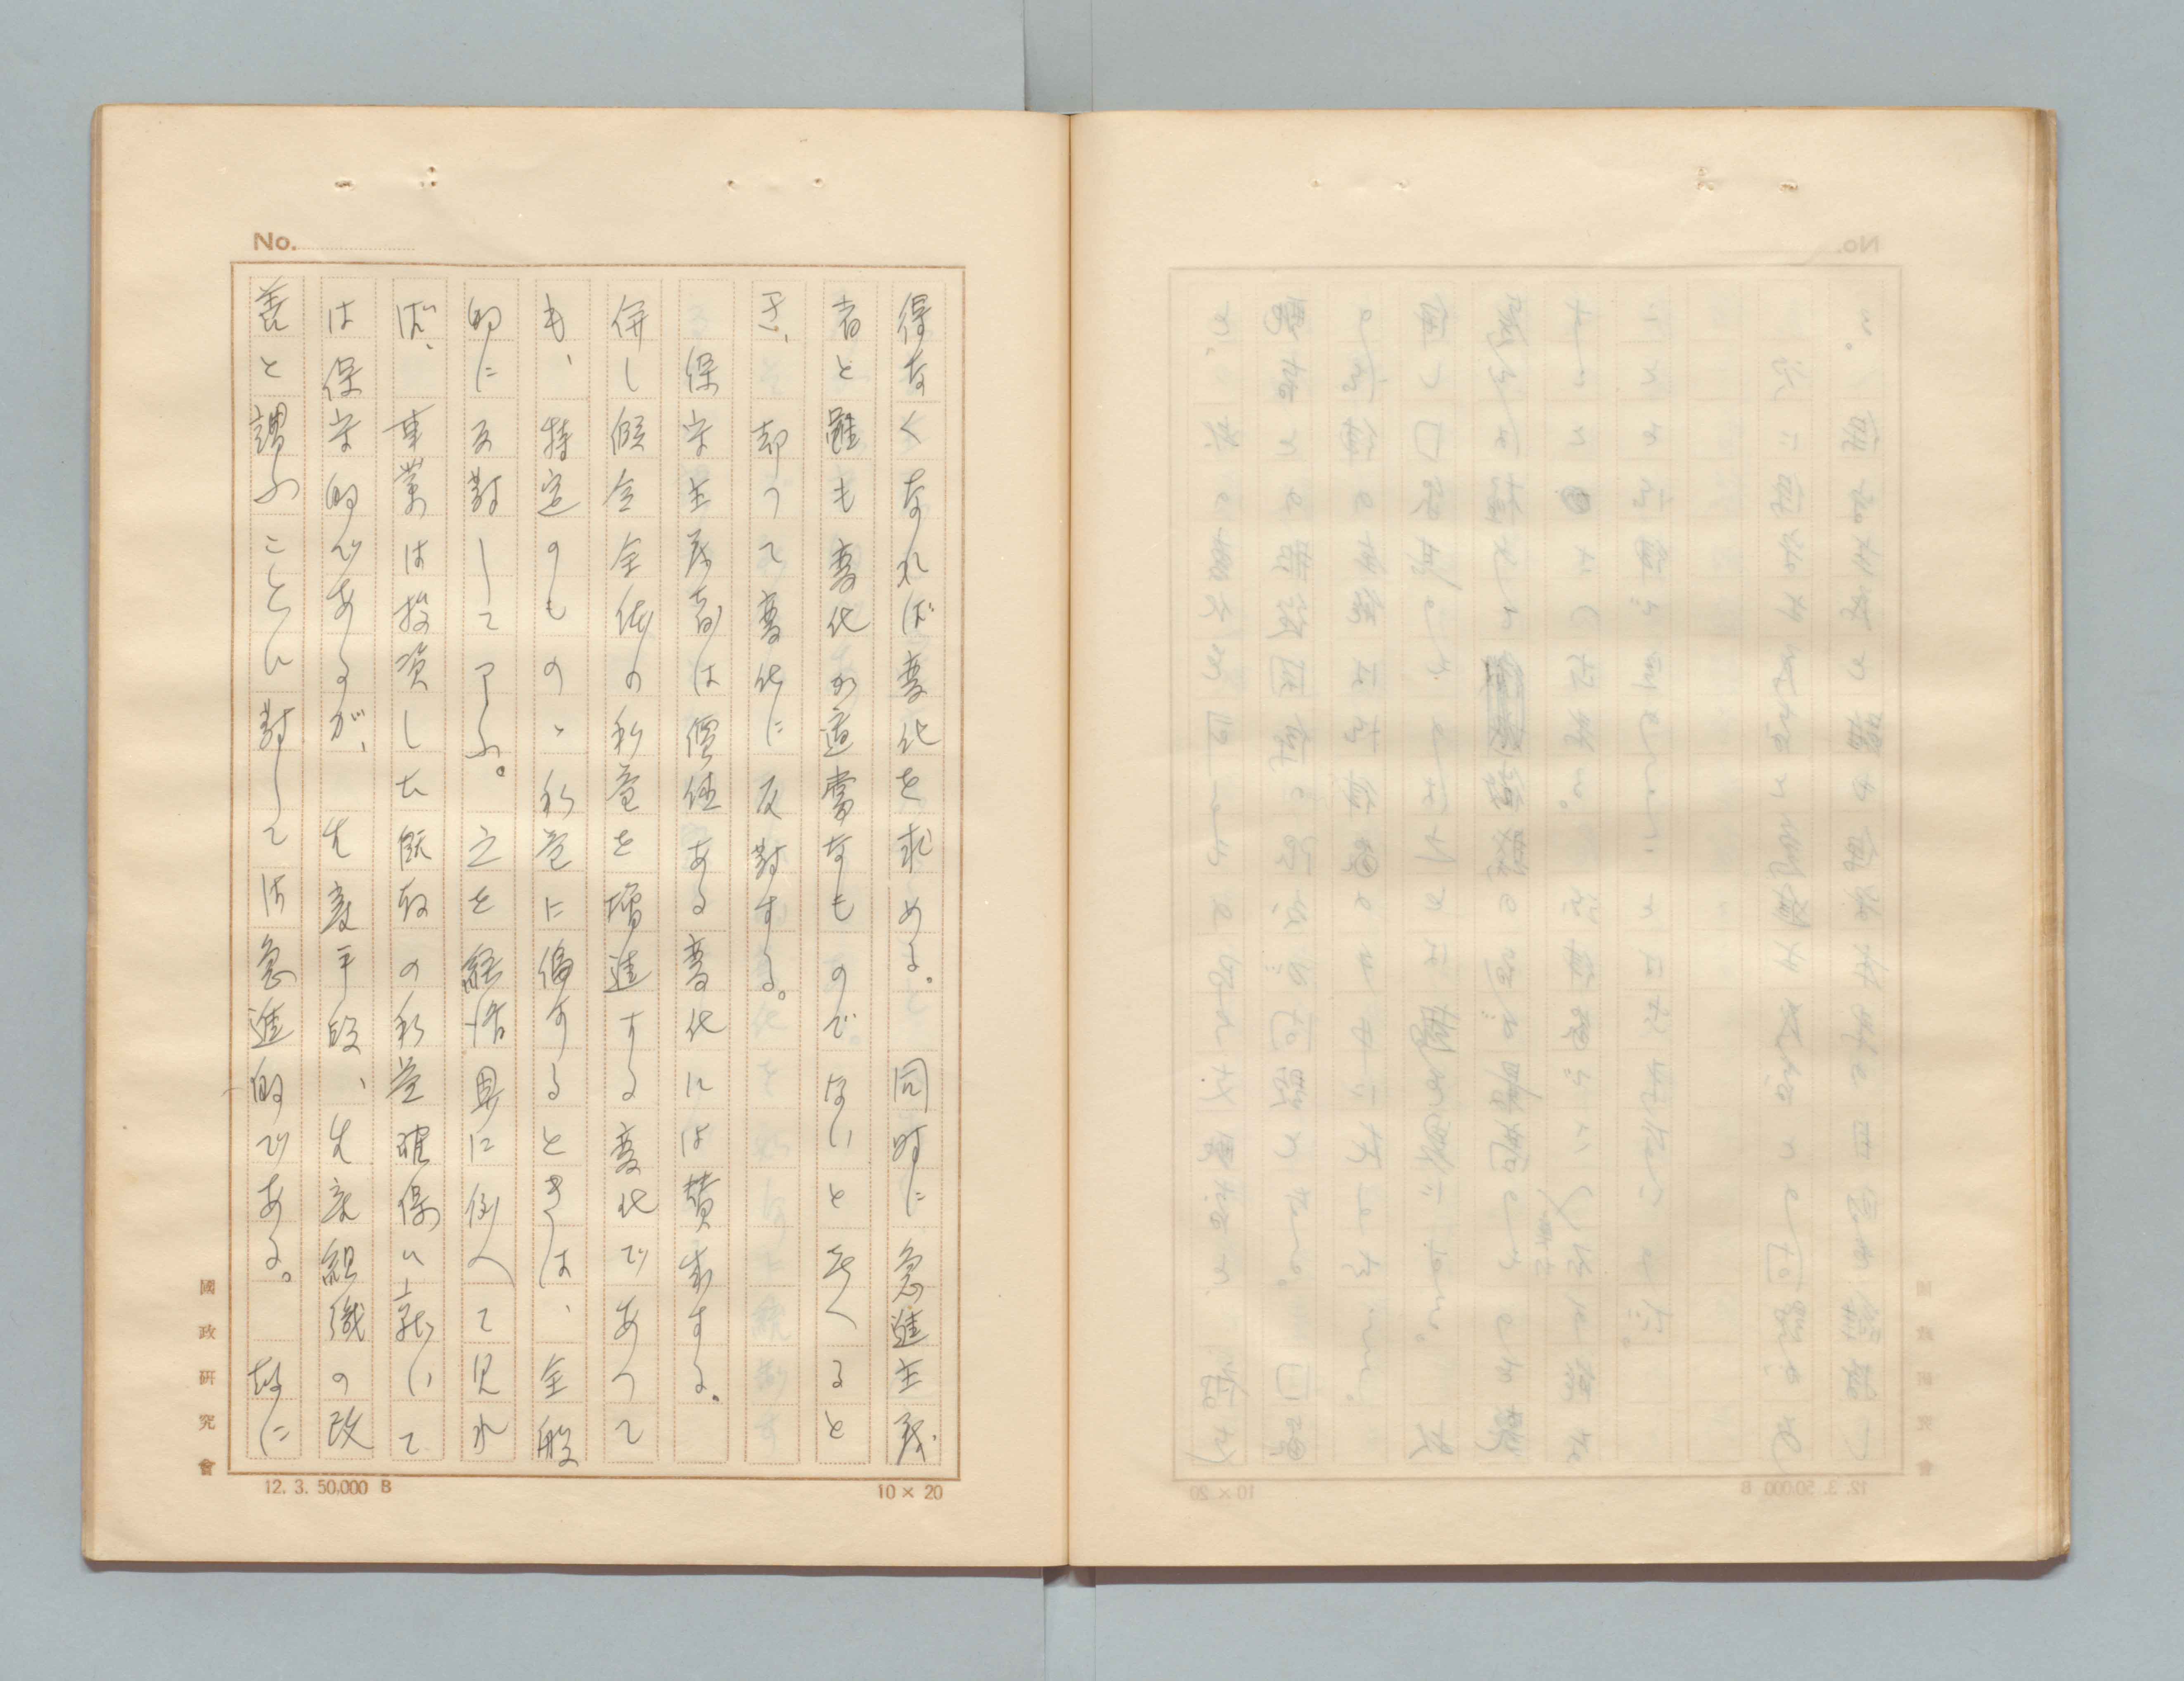 No.
得なくなれば変化を求める。同時に急進主義
者と雖も変化が適当なものでないと考へると
き、却つて変化に反対する。
保守主義者は価値ある変化には賛成する。
併し仮令全体の利益を増進する変化であつて
も、特定のものゝ利益に偏するときは、全般
的に反対してしまふ。之を経済界に例へて見れ
ば、事業は投資した既存の利益確保に就いて
は保守的であるが、生産手段、生産組織の改
善と謂ふことに対しては急進的である。故に
國政研究會
12. 3. 50,000 B
10 × 20